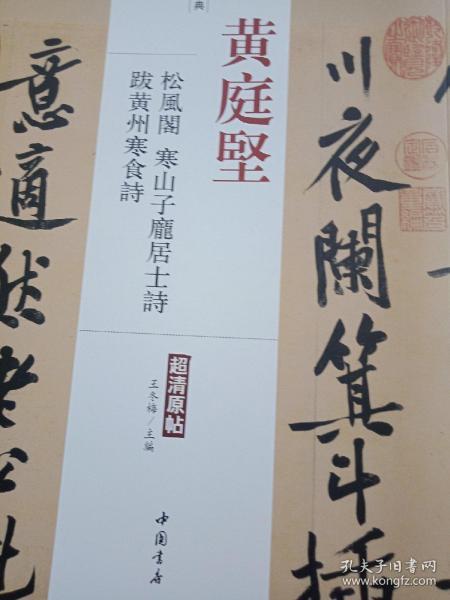 典
黄庭堅
松風閣 寒山子龐居士詩
跋黄州寒食詩
超清原帖
王冬梅/主编
中国书店
川夜闌箕斗插
意適然老松魁
孔夫子旧书网
www.kongfz.com